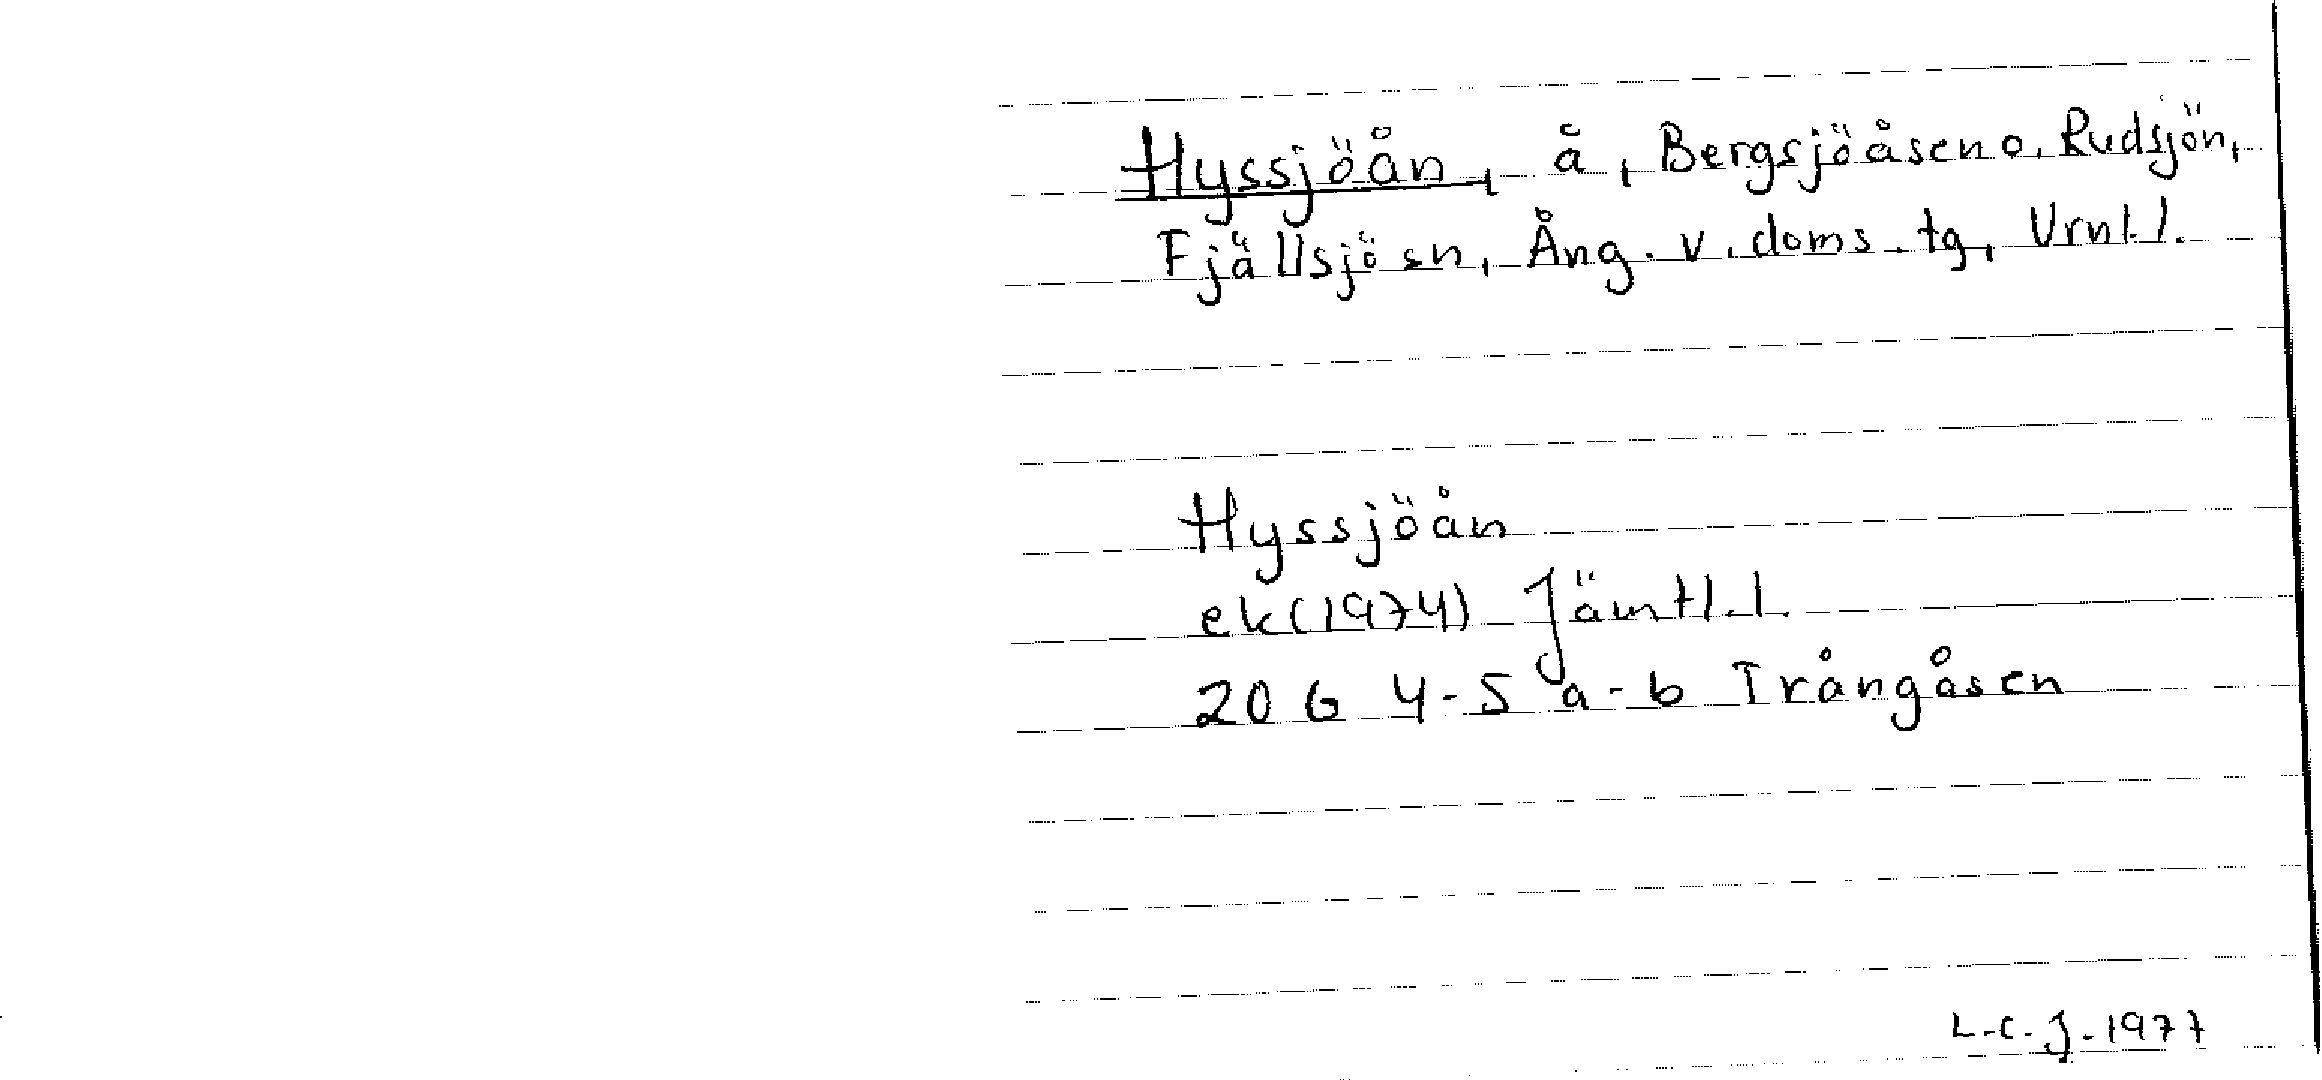 Hyssjöån, å, Bergsjöåsen o. Rudsjön,
Fjällsjö sn, Ång. v. doms. tg, Vrnl. l.
Hyssjöån
ek (1974) Jämtl. l.
20 G 4-5 a-b Trångåsen
L-C. J. 1977